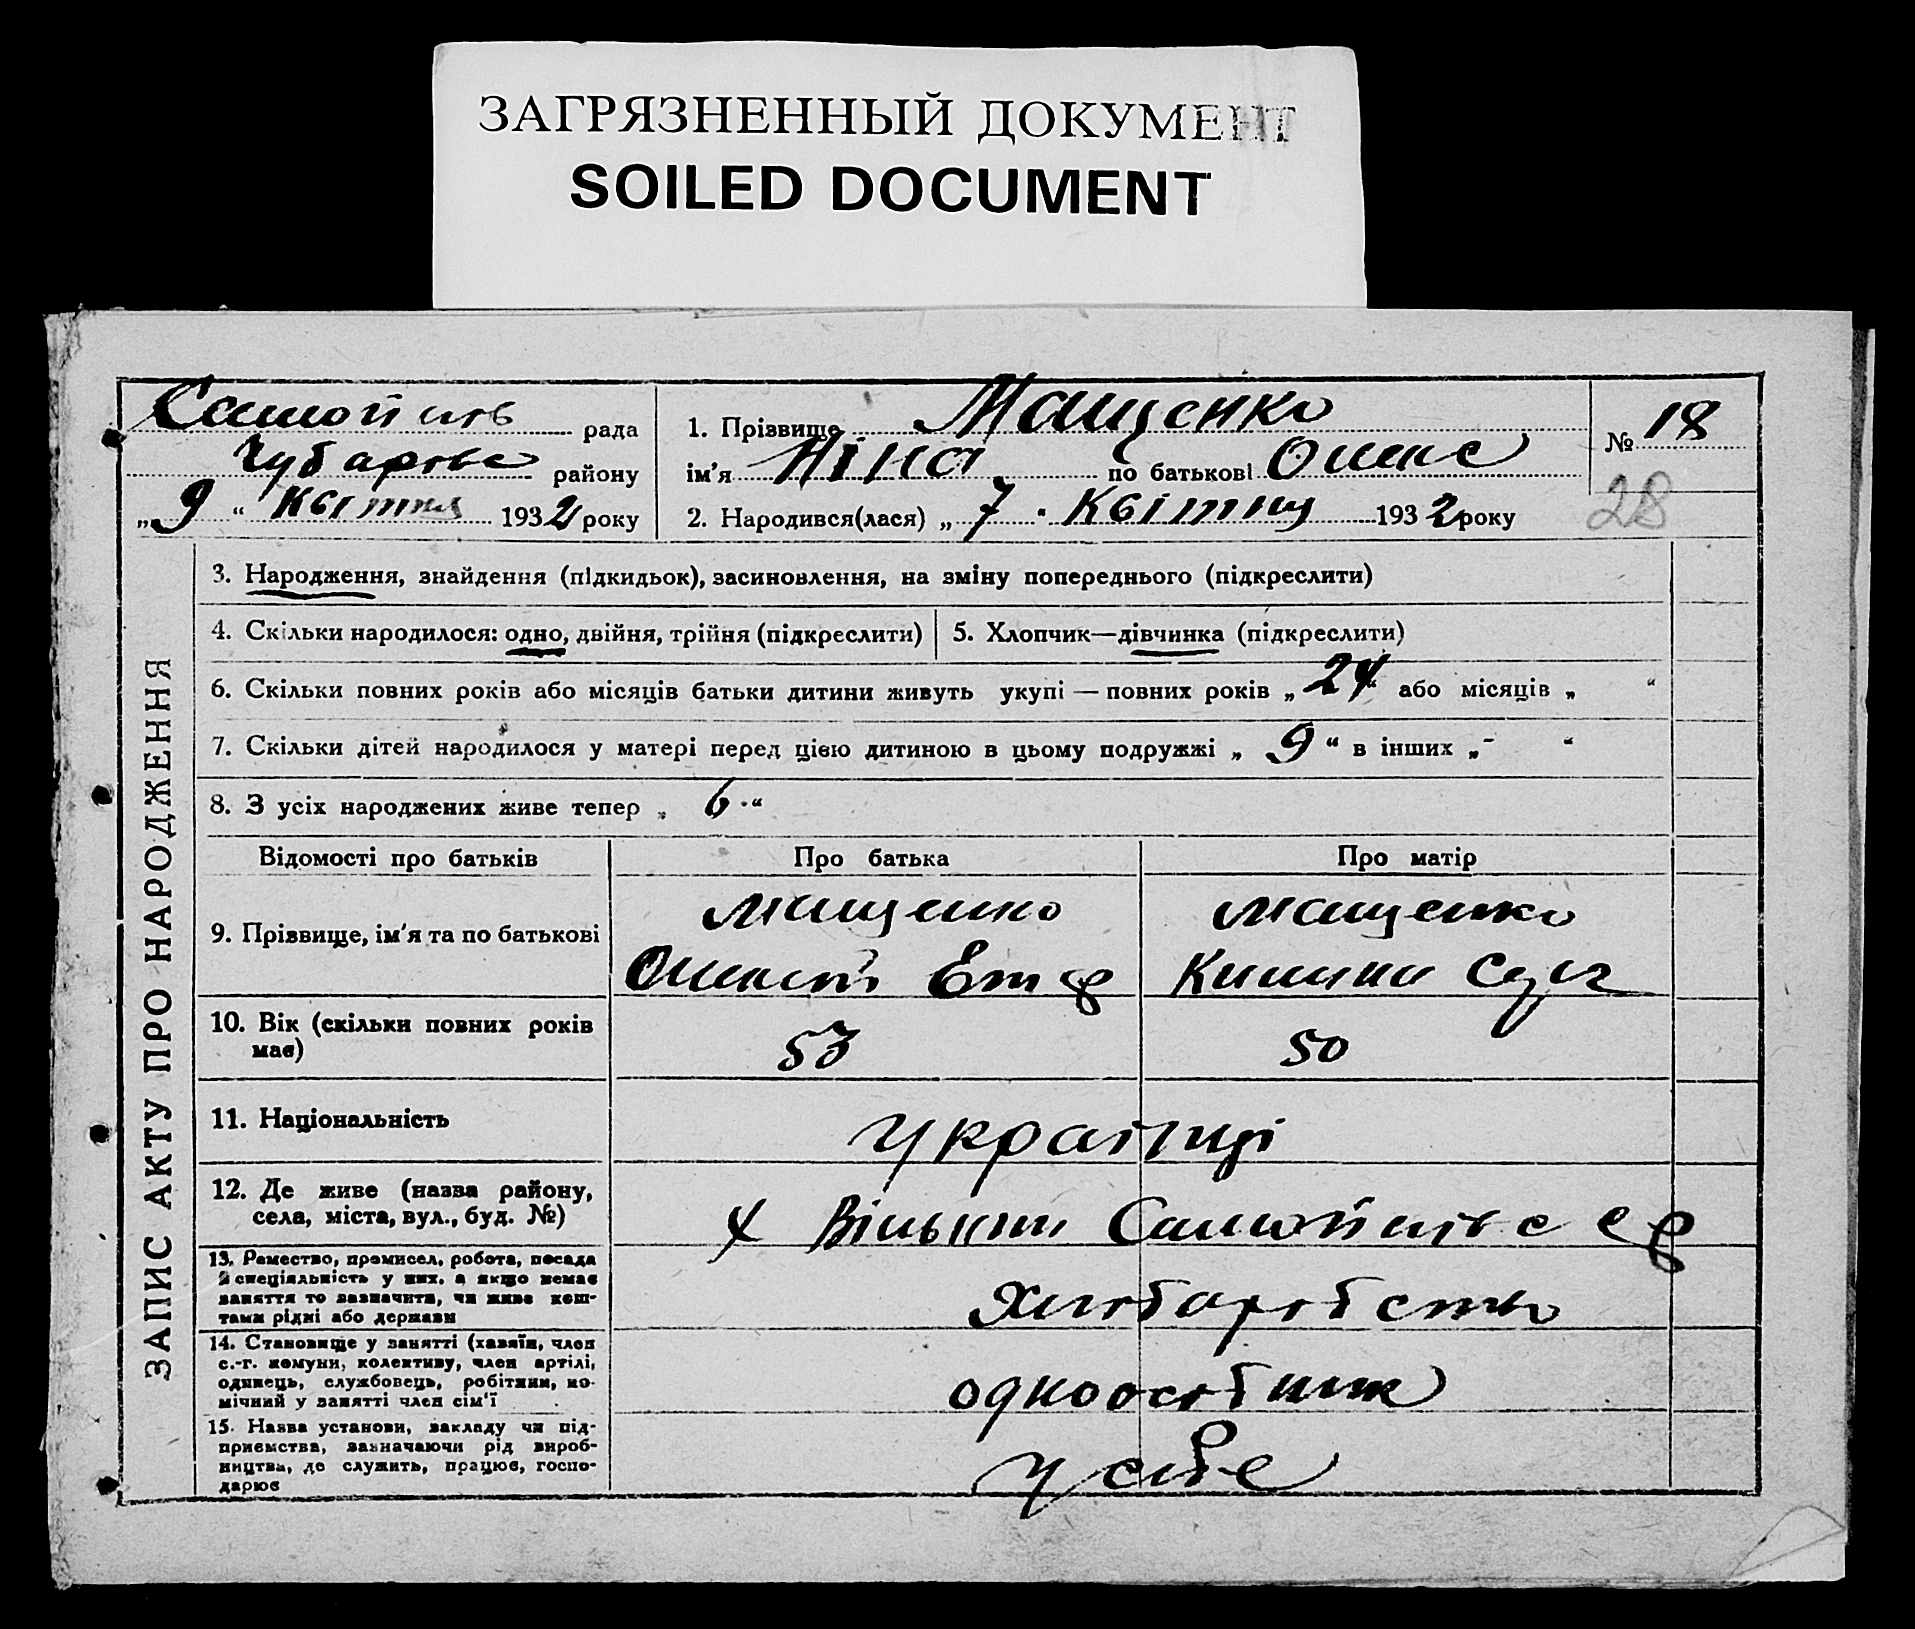 ЗАГРЯЗНЕННЫЙ ДОКУМЕНТ
SOILED DOCUMENT
рада
Чубарівс району
„ 9 “ Квітня 1932 року
1. Прізвище Мащенко
ім'я Ніна по батькові
2. Народився(лася) „ 7 . Квітня 1932 року
№ 18
28
ЗАПИС АКТУ ПРО НАРОДЖЕННЯ
3. Народження, знайдення (підкидьок), засиновлення, на зміну попереднього (підкреслити)
4. Скільки народилося: одно, двійня, трійня (підкреслити)
5. Хлопчик—дівчинка (підкреслити)
6. Скільки повних років або місяців батьки дитини живуть укупі — повних років „ 24 “ або місяців „ “
7. Скільки дітей народилося у матері перед цією дитиною в цьому подружжі „ 9 “ в інших „ - “
8. З усіх народжених живе тепер „ 6 . “
Відомості про батьків
Про батька
Про матір
9. Прізвище, ім'я та по батькові
Мащенко
Мащенко
10. Вік (скільки повних років
має)
53
50
11. Національність
Українці
12. Де живе (назва району,
села, міста, вул., буд. №)
13. Ремество, промисел, робота, посада
й спеціяльність у них, а якщо немає
заняття то зазначити, чи живе кош-
тами рідні або держави
Хліборобство
14. Становище у занятті (хазяїн, член
с.-г. комуни, колективу, член артілі,
одинець, службовець, робітник, по-
мічний у занятті член сім'ї
одноосібник
15. Назва установи, закладу чи під-
приємства, зазначаючи рід вироб-
ництва, де служить, працює, госпо-
дарює
у себе